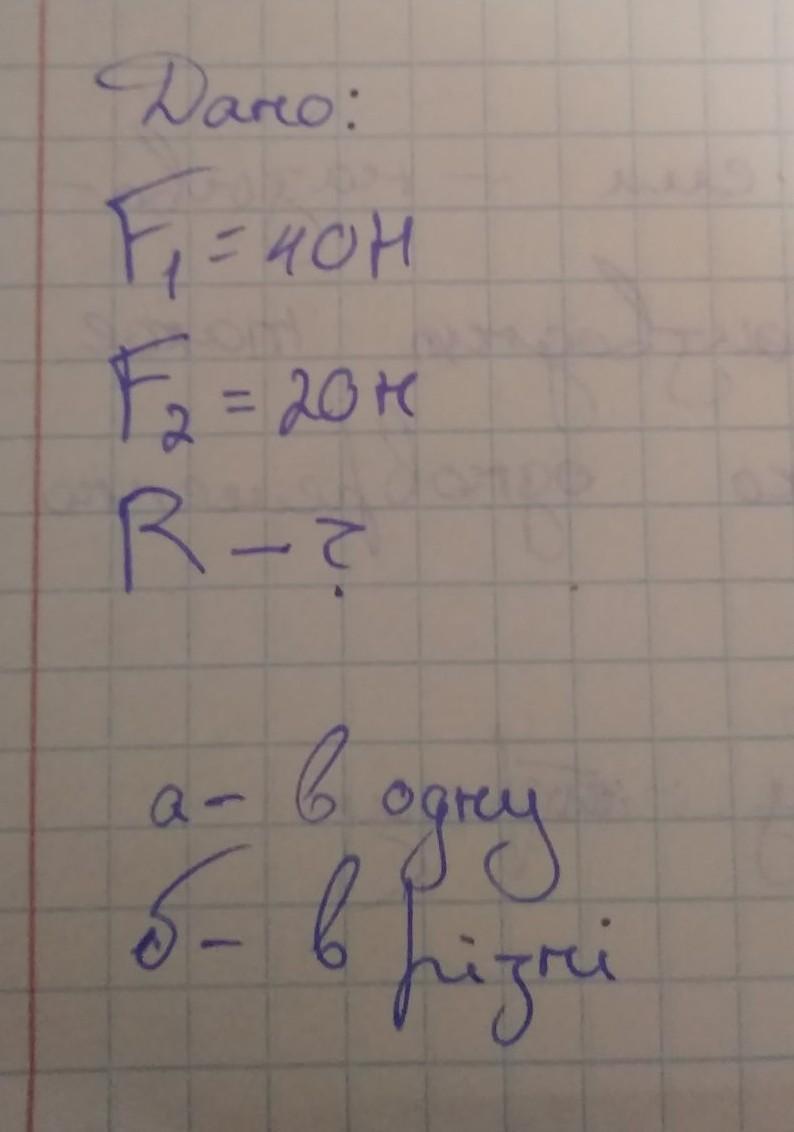 Дано:
F₁ = 40H
F₂ = 20н
R – ?
а – в одну
б – в різні